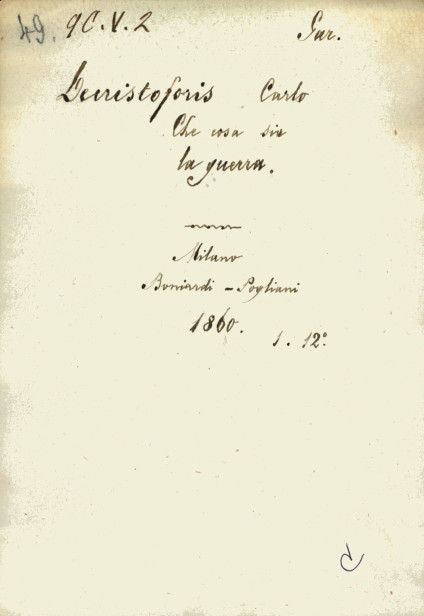 49. 9C.V.2
Decristoforis Carlo
Che cosa sia
la guerra.
Milano
Boniardi - Pogliani
1860.
1. 12°